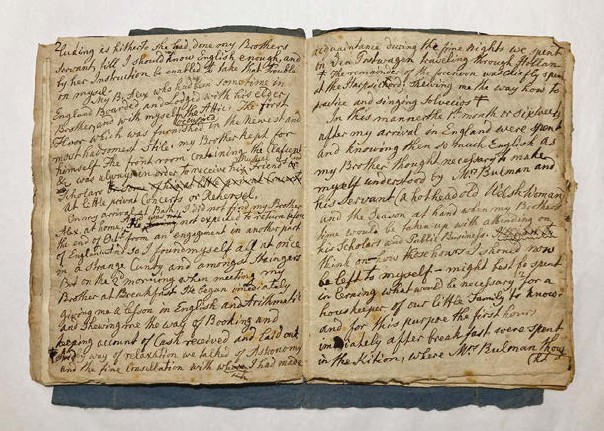 Lucking as hitherto She had done my Brothers
Servant, till I should know English enough, and
by her Instruction be enabled to take that trouble
on myself.
My Br. Alex who had been sometime in
England Boarded and Lodged with his elder
Brother and with myself the Attic. The first
occupied
Floor which was furnished in the Newest and
most handsomest Stile, my Brother kept for
himself. The front room containing the
was always in order to receive his
Scholars
at little privat Concerts or Rehersel.
On my arrival at Bath, I did not find my Brother
Alex. at home, He was not expected to return before
the end of Octr. from an engagement in another part
of England and so I found myself all at once
in a strange Cuntry and amongst strangers
But on the 2d morning when meeting my
Brother at Breakfast He began imediately
giving me a lesson in English and Arithmetic
and shewing me the way of Booking and
keeping account of Cash received and laid out
And by way of relaxtion we talked of Astronomy
and the fine Constellation with whom I had made
acquaintance during the fine Nights we spent
in the Postwagen traveling through Hollan
The remainder of the forenoon was chiefly spent
at the Harpsichord; shewing me the way how to
practice and singing Solvecios
In this manner the 1st month or Sixweeks
after my arrival in England were spent
and knowing then so much English as
my Brother thought necessary to make
myself understood by Mrs Bulman and
his Servant (a hotheaded old Welsh Woman
and the Season at hand when my Brothers
time would be taken up with attending on
his Scholars and Public Business.
think on - so these hours I should now
be left to myself - might best be spent
in learning what would be necessary for a
housekeeper of our little Family to know:
and for this purpose the first hours
imediately after breakfast were spent
in the Kitchen, where Mrs Bulman